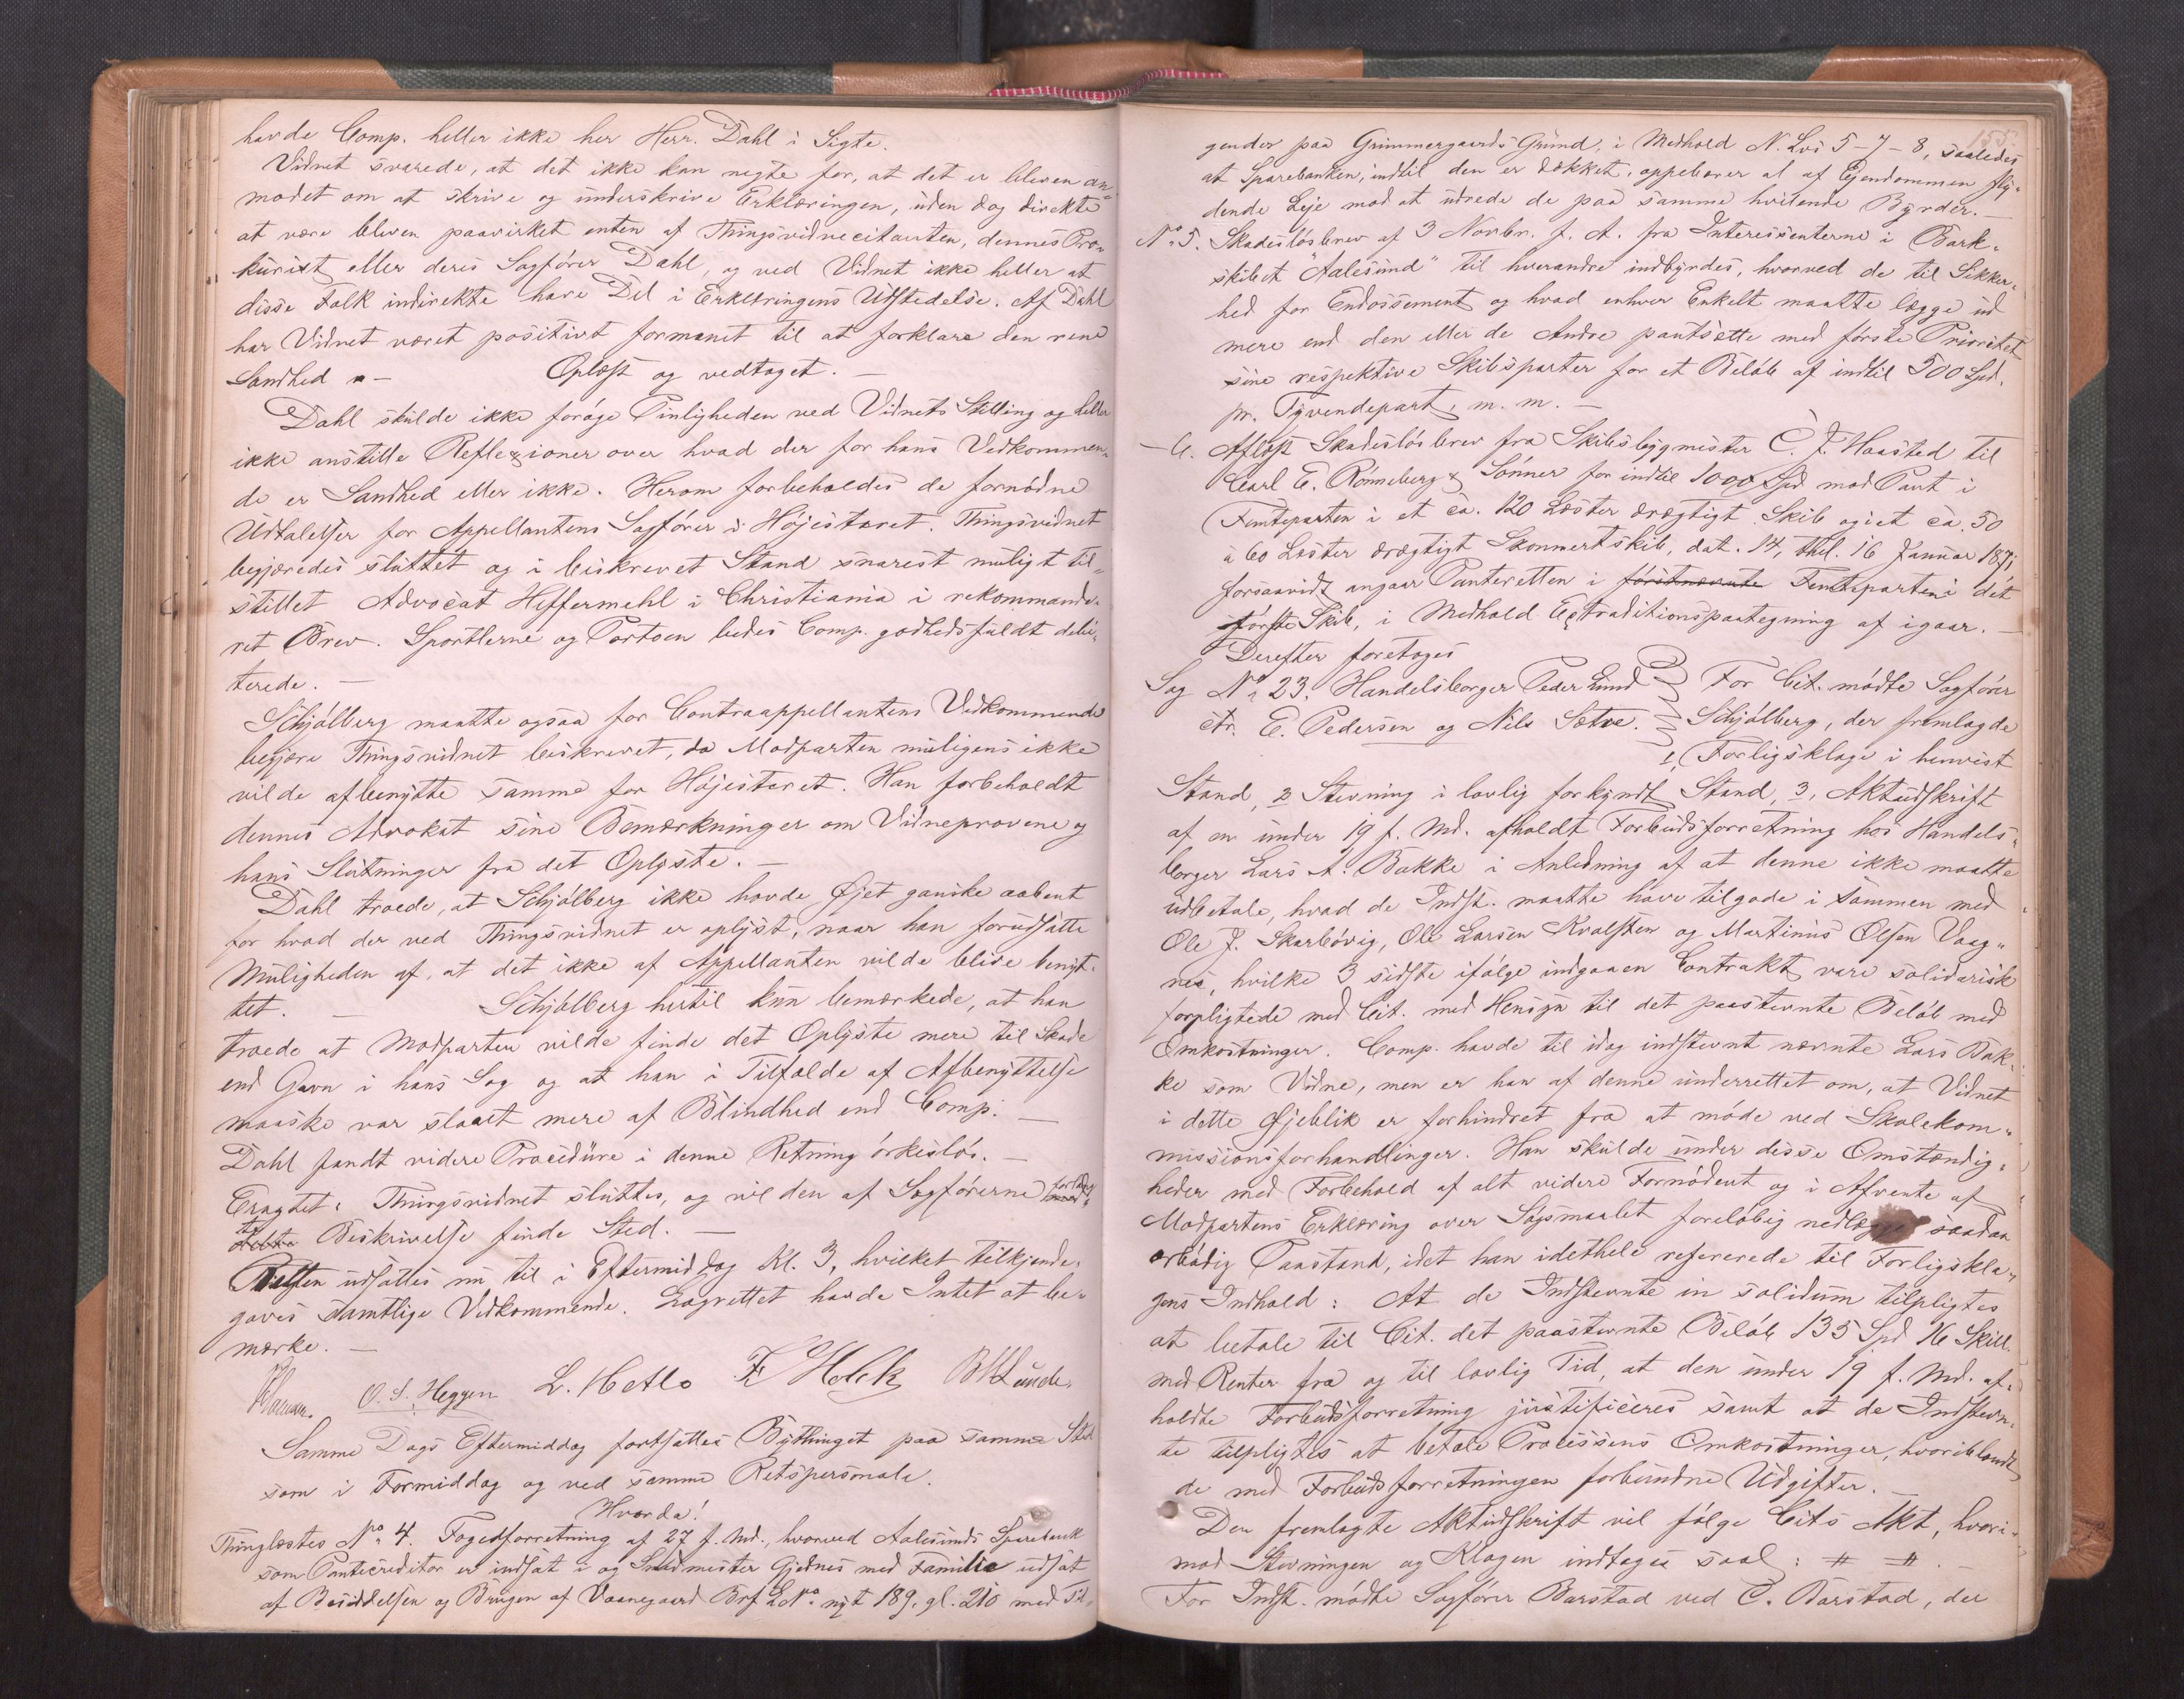 havde Comp. heller ikke her Herr. Dahl i Sigte.
Vidnet svarede, at det ikke kan negte for, at det er bleven an-
modet om at skrive og underskrive Erklæringen, uden dog direkte
at være bleven paavirket enten af Thingsvidnecitanten, dennes Pro-
kurist eller deres Sagfører Dahl, og ved Vidnet ikke heller at
disse Folk indirekte have Del i Erklæringens Udstedelse. Af Dahl
har Vidnet været positivt formanet til at forklare den rene
Sandhed. — Oplæst og vedtaget. —
Dahl skulde ikke forøge Pinligheden ved Vidnets Stilling og heller
ikke anstille Reflexioner over hvad der for hans Vedkommen-
de er Sandhed eller ikke. Herom forbeholdes de fornødne
Udtalelser for Appellantens Sagfører i Højesteret. Thingsvidnet
begjæredes sluttet og i beskrevet Stand snarest muligt til-
stillet Advocat Heffermehl i Christiania i rekommande-
ret Brev. Sportlerne og Portoen bedes Comp. godhedsfuldt debi-
terede. —
Schjølberg maatte ogsaa for Contraappellantens Vedkommende
begjære Thingsvidnet beskrevet, da Modparten muligens ikke
vilde afbenytte samme for Højesteret. Han forbeholdt
dennes Advokat sine Bemærkninger om Vidneprovene og
hans Slutninger fra det Oplyste. —
Dahl troede, at Schjølberg ikke havde Øjet ganske aabent
for hvad der ved Thingsvidnet er oplyst, naar han forudsatte
Muligheden af, at det ikke af Appellanten vilde blive benyt-
tet. — Schjølberg hertil kun bemærkede, at han
troede at Modparten vilde finde det Oplyste mere til Skade
end Gavn i hans Sag og at han i Tilfælde af Afbenyttelse
maaske var slaaet mere af Blindhed end Comp. —
Dahl fandt videre Procedure i denne Retning ørkesløs. —
Eragtet: Thingsvidnet sluttes, og vil den af Sagførerne forlang-
te Beskrivelse finde Sted. —
Retten udsattes nu til i Eftermiddag Kl. 3, hvilket tilkjende-
gaves samtlige Vedkommende. Lagrettet havde Intet at be-
mærke. —
O. S. Heggen L. Hetlo F Holck B Lunde.
Samme Dags Eftermiddag fortsattes Bythinget paa samme Sted
som i Formiddag og ved samme Retspersonale.
Hvorda!
Thinglæstes No 4. Fogedforretning af 27 f. Md., hvorved Aalesunds Sparebank
som Pantecreditor er indsat i og Smedmester Gjednes med Familie udsat
af Besiddelsen og Brugen af Vaanegaard Brf. L No nyt 189, gl. 210 med Til-
155
gender paa Grimmergaards Grund, i Medhold N. Lvs 5-7-8, saaledes
at Sparebanken, indtil den er dækket, oppebærer al af Ejendommen fly-
dende Leje mod at udrede de paa samme hvilende Byrder. —
No 5. Skadesløsbrev af 3 Novbr. f. A. fra Interessenterne i Bark-
skibet "Aalesund" til hverandre indbyrdes, hvorved de til Sikker-
hed for Endossement og hvad enhver Enkelt maatte lægge ud
mere end den eller de Andre pantsætte med første Prioritet
sine respektive Skibsparter for et Beløb af indtil 500 Spd.
pr. Tyvendepart, m. m. —
— Aflæst Skadesløsbrev fra Skibsbygmester C. J. Haasted til
Carl E. Rønneberg & Sønner for indtil 1000 Spd mod Pant i
Femteparten i et ca. 120 Læster drægtigt Skib og i et ca. 50
à 60 Læster drægtigt Skonnertskib, dat. 14, thl. 16 Januar 1871
forsaavidt angaar Panteretten i førstnævnte Femteparten i det
første Skib, i Medhold Extraditionspaategning af igaar. —
Derefter foretoges
Sag No 23. Handelsborger Peder Lund
ctr. E. Pedersen og Nils Sætre.
For Cit. mødte Sagfører
Schjølberg, der fremlagde
1, Forligsklage i henvist
Stand, 2 Stevning i lovlig forkyndt Stand, 3, Aktudskrift
af en under 19 f. Md. afholdt Forbudsforretning hos Handels-
borger Lars A. Bakke i Anledning af at denne ikke maatte
udbetale, hvad de Indst. maatte have tilgode i sammen med
Ole J. Skarbøvig, Ole Larsen Kvalsten og Martinus Olsen Vaag-
nes, hvilke 3 sidste ifølge indgaaen Contrakt vare solidarisk
forpligtede med Cit. med Hensyn til det paastevnte Beløb med
Omkostninger. Comp. havde til idag indstevnt nævnte Lars Bak-
ke som Vidne, men er han af denne underrettet om, at Vidnet
i dette Øjeblik er forhindret fra at møde ved Skolekom-
missionsforhandlinger. Han skulde under disse Omstændig-
heder med Forbehold af alt videre Fornødent og i Afvente af
Modpartens Erklæring over Søgsmaalet foreløbig nedlægge saadan
ærbødig Paastand, idet han idethele refererede til Forligskla-
gens Indhold: At de Indstevnte in solidum tilpligtes
at betale til Cit. det paastevnte Beløb 135 Spd 16 Skill.
med Renter fra og til lovlig Tid, at den under 19 f. Md. af-
holdte Forbudsforretning justificeres samt at de Indstevn-
te tilpligtes at betale Processens Omkostninger, hvoriblandt
de med Forbudsforretningen forbundne Udgifter. —
Den fremlagte Aktudskrift vil følge Cits Akt, hvori-
mod Stevningen og Klagen indtages saal: # #.
For Indst. mødte Sagfører Barstad ved C. Barstad, der